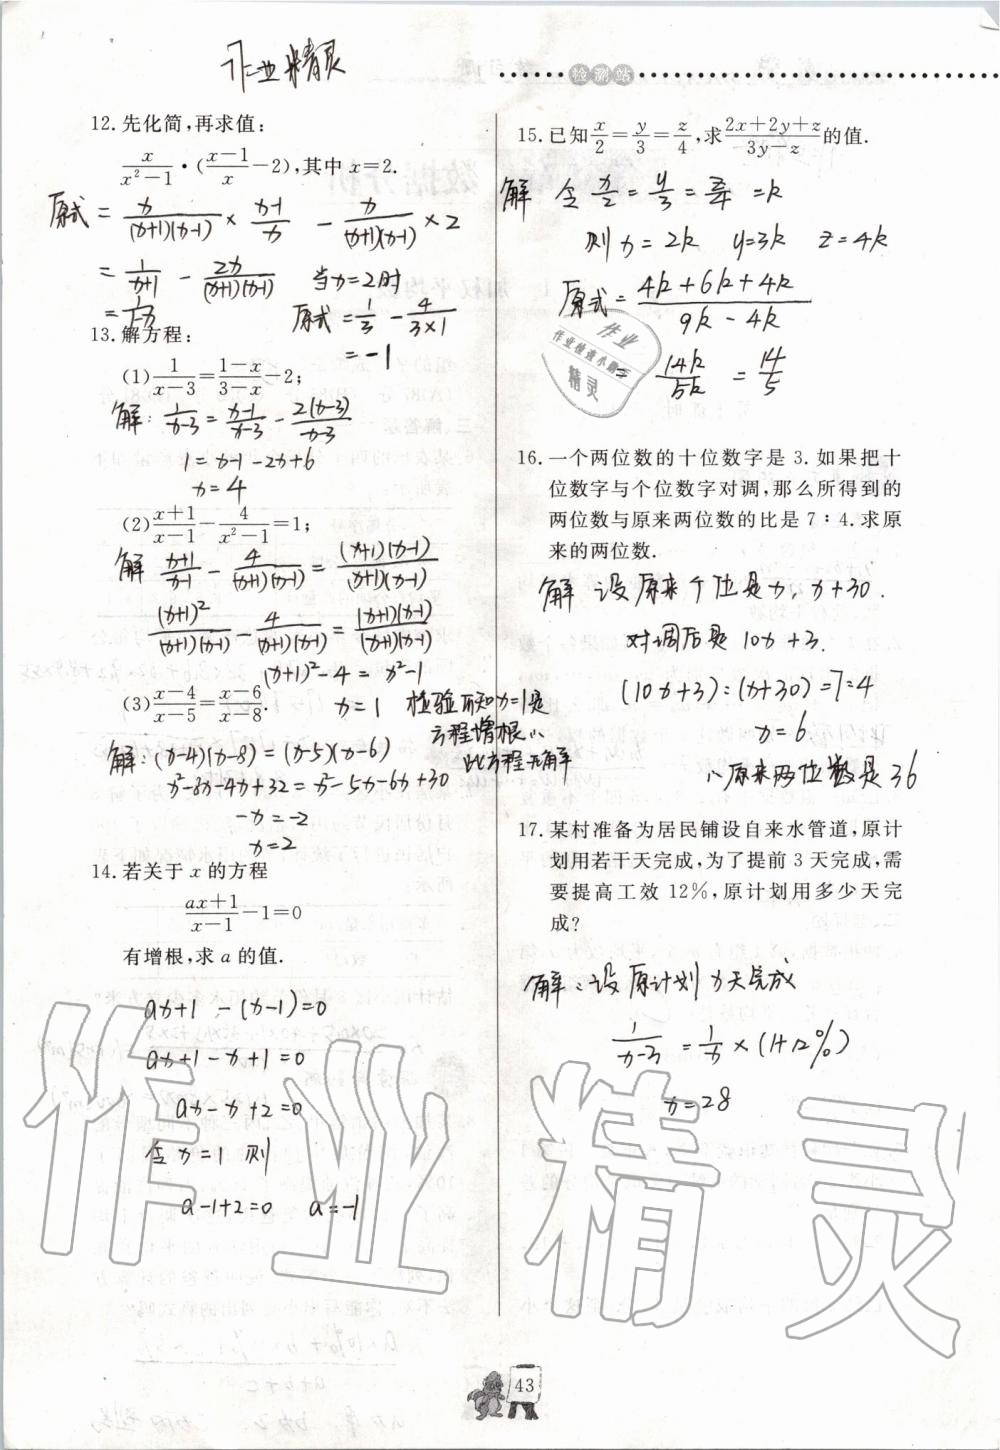 作业精灵
检测站
12.先化简,再求值:
x/(x²-1)·((x-1)/x-2),其中x=2.
原式= x/((x+1)(x-1)) × (x-1)/x - x/((x+1)(x-1)) ×2
= 1/(x+1) - 2x/((x+1)(x-1)) 当x=2时
= 1/(1-x) 原式=1/3-4/(3×1)
=-1
13.解方程:
(1)1/(x-3)=(1-x)/(3-x)-2;
解: 1/(x-3)=(x-1)/(x-3)-2(x-3)/(x-3)
1=x-1-2x+6
x=4
(2)(x+1)/(x-1)-4/(x²-1)=1;
解 (x+1)/(x-1) - 4/((x+1)(x-1)) = (x+1)(x-1)/((x+1)(x-1))
(x+1)²/((x+1)(x-1)) - 4/((x+1)(x-1)) = (x+1)(x-1)/((x+1)(x-1))
(x+1)²-4=x²-1
(3)(x-4)/(x-5)=(x-6)/(x-8).
x=1 检验可知x=1是
方程增根∴
此方程无解
解: (x-4)(x-8)=(x-5)(x-6)
x²-8x-4x+32=x²-5x-6x+30
-x=-2
x=2
14.若关于x的方程
(ax+1)/(x-1)-1=0
有增根,求a的值.
ax+1-(x-1)=0
ax+1-x+1=0
ax-x+2=0
令x=1 则
a-1+2=0 a=-1
15.已知x/2=y/3=z/4,求(2x+2y+z)/(3y-z)的值.
解 令 x/2=y/3=z/4=k
则x=2k y=3k z=4k
原式=(4k+6k+4k)/(9k-4k)
=14k/5k=14/5
作业
作业检查小助手
精灵
16.一个两位数的十位数字是3.如果把十
位数字与个位数字对调,那么所得到的
两位数与原来两位数的比是7:4.求原
来的两位数.
解 设原来个位是x, x+30.
对调后是10x+3.
(10x+3):(x+30)=7:4
x=6
∴原来两位数是36
17.某村准备为居民铺设自来水管道,原计
划用若干天完成,为了提前3天完成,需
要提高工效12%,原计划用多少天完
成?
解:设原计划x天完成
1/(x-3)=1/x×(1+12%)
x=28
作业精灵
43